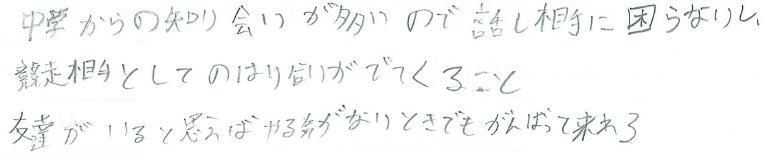 中学からの知り会いが多いので話し相手に困らないし、
競走相手としてのはり合いがでてくること
友達がいると思えばやる気がないときでもがんばって来れる